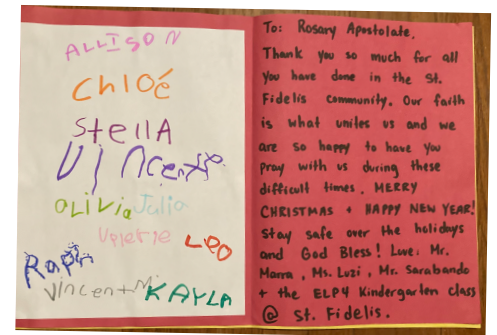 ALLISON
Chloé
Stella
Vincent
Olivia Julia
Valerie LEO
Raph
Vincent M KAYLA
To: Rosary Apostolate,
Thank you so much for all
you have done in the St.
Fidelis community. Our faith
is what unites us and we
are so happy to have you
pray with us during these
difficult times. MERRY
CHRISTMAS + HAPPY NEW YEAR!
Stay safe over the holidays
and God Bless! Love: Mr.
Marra, Ms. Luzi, Mr. Sarabando
+ the ELP4 Kindergarten class
@ St. Fidelis.